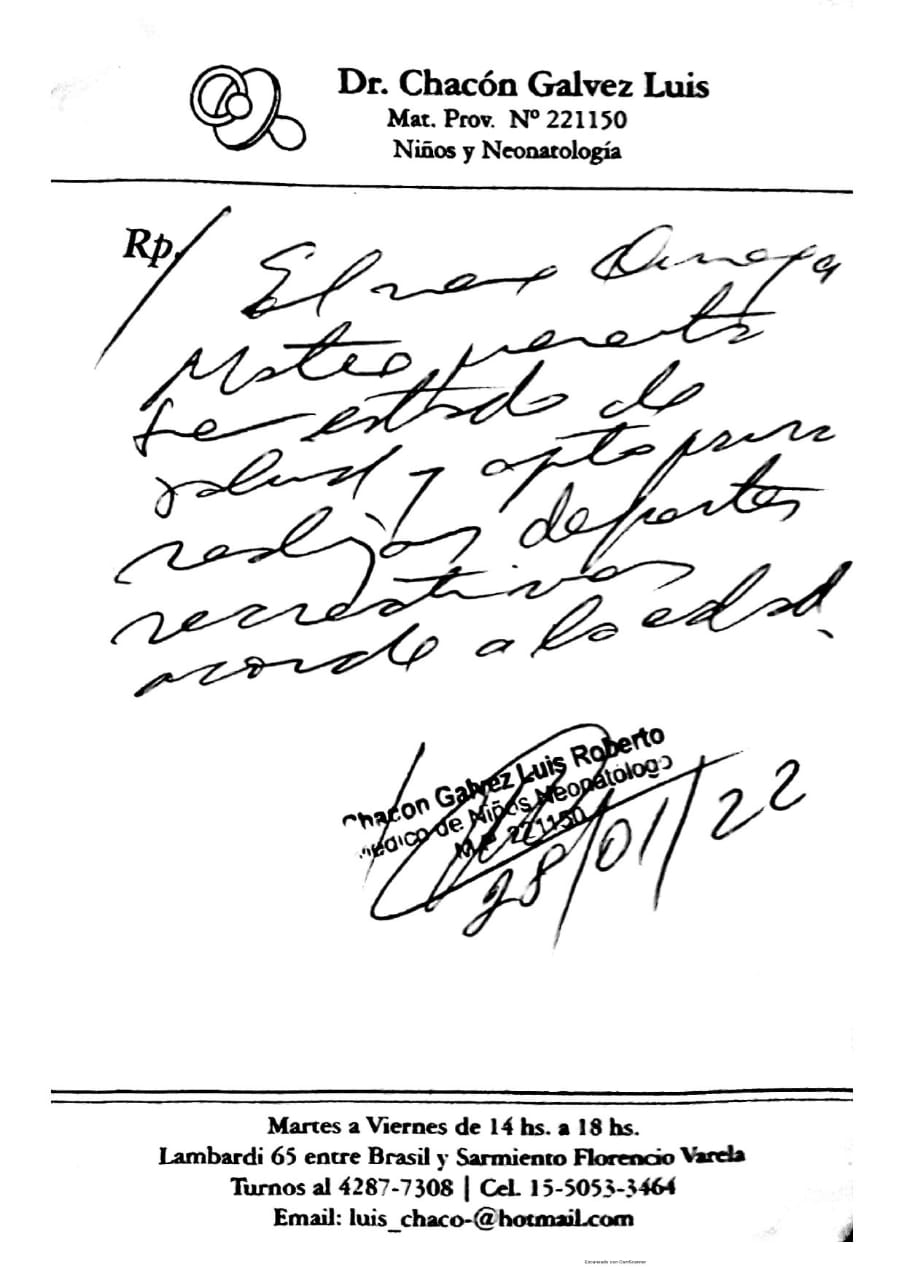 Dr. Chacón Galvez Luis
Mat. Prov. Nº 221150
Niños y Neonatología
Rp/
El nene
Mateo presenta
estado de
salud y apto para
realizar deportes
recreativos
acorde a la edad.
Chacon Galvez Luis Roberto
Medico de Niños Neonatologo
M.P 221150
28/01/22
Martes a Viernes de 14 hs. a 18 hs.
Lambardi 65 entre Brasil y Sarmiento Florencio Varela
Turnos al 4287-7308 | Cel. 15-5053-3464
Email: luis_chaco-@hotmail.com
Escaneado con CamScanner